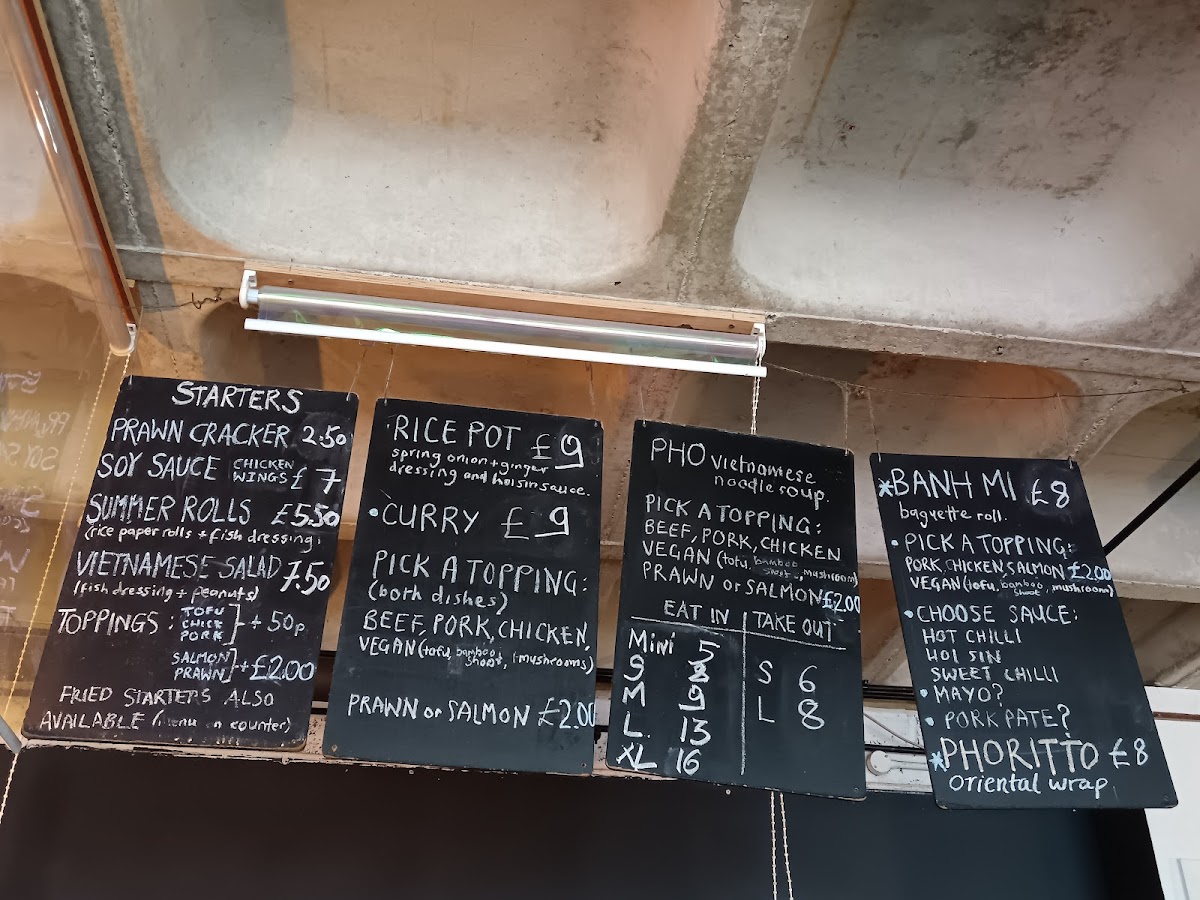 STARTERS
PRAWN CRACKER 2.50
SOY SAUCE CHICKEN WINGS £7
SUMMER ROLLS £5.50
(rice paper rolls + fish dressing)
VIETNAMESE SALAD 7.50
(fish dressing + peanuts)
TOPPINGS: TOFU CHICK PORK } + 50p
SALMON PRAWN } + £2.00
FRIED STARTERS ALSO
AVAILABLE (menu on counter)
RICE POT £9
spring onion + ginger
dressing and hoisin sauce.
• CURRY £9
PICK A TOPPING:
(both dishes)
BEEF, PORK, CHICKEN,
VEGAN (tofu, bamboo shoot, mushrooms)
PRAWN or SALMON £2.00
PHO vietnamese
noodle soup.
PICK A TOPPING:
BEEF, PORK, CHICKEN
VEGAN (tofu, bamboo shoot, mushroom)
PRAWN or SALMON £2.00
EAT IN TAKE OUT
Mini 5
S 8 S 6
M 9 L 8
L. 13
XL 16
*BANH MI £8
baguette roll.
• PICK A TOPPING:
PORK, CHICKEN, SALMON £2.00
VEGAN (tofu, bamboo shoot, mushrooms)
• CHOOSE SAUCE:
HOT CHILLI
HOI SIN
SWEET CHILLI
• MAYO?
• PORK PATE?
*PHORITTO £8
oriental wrap